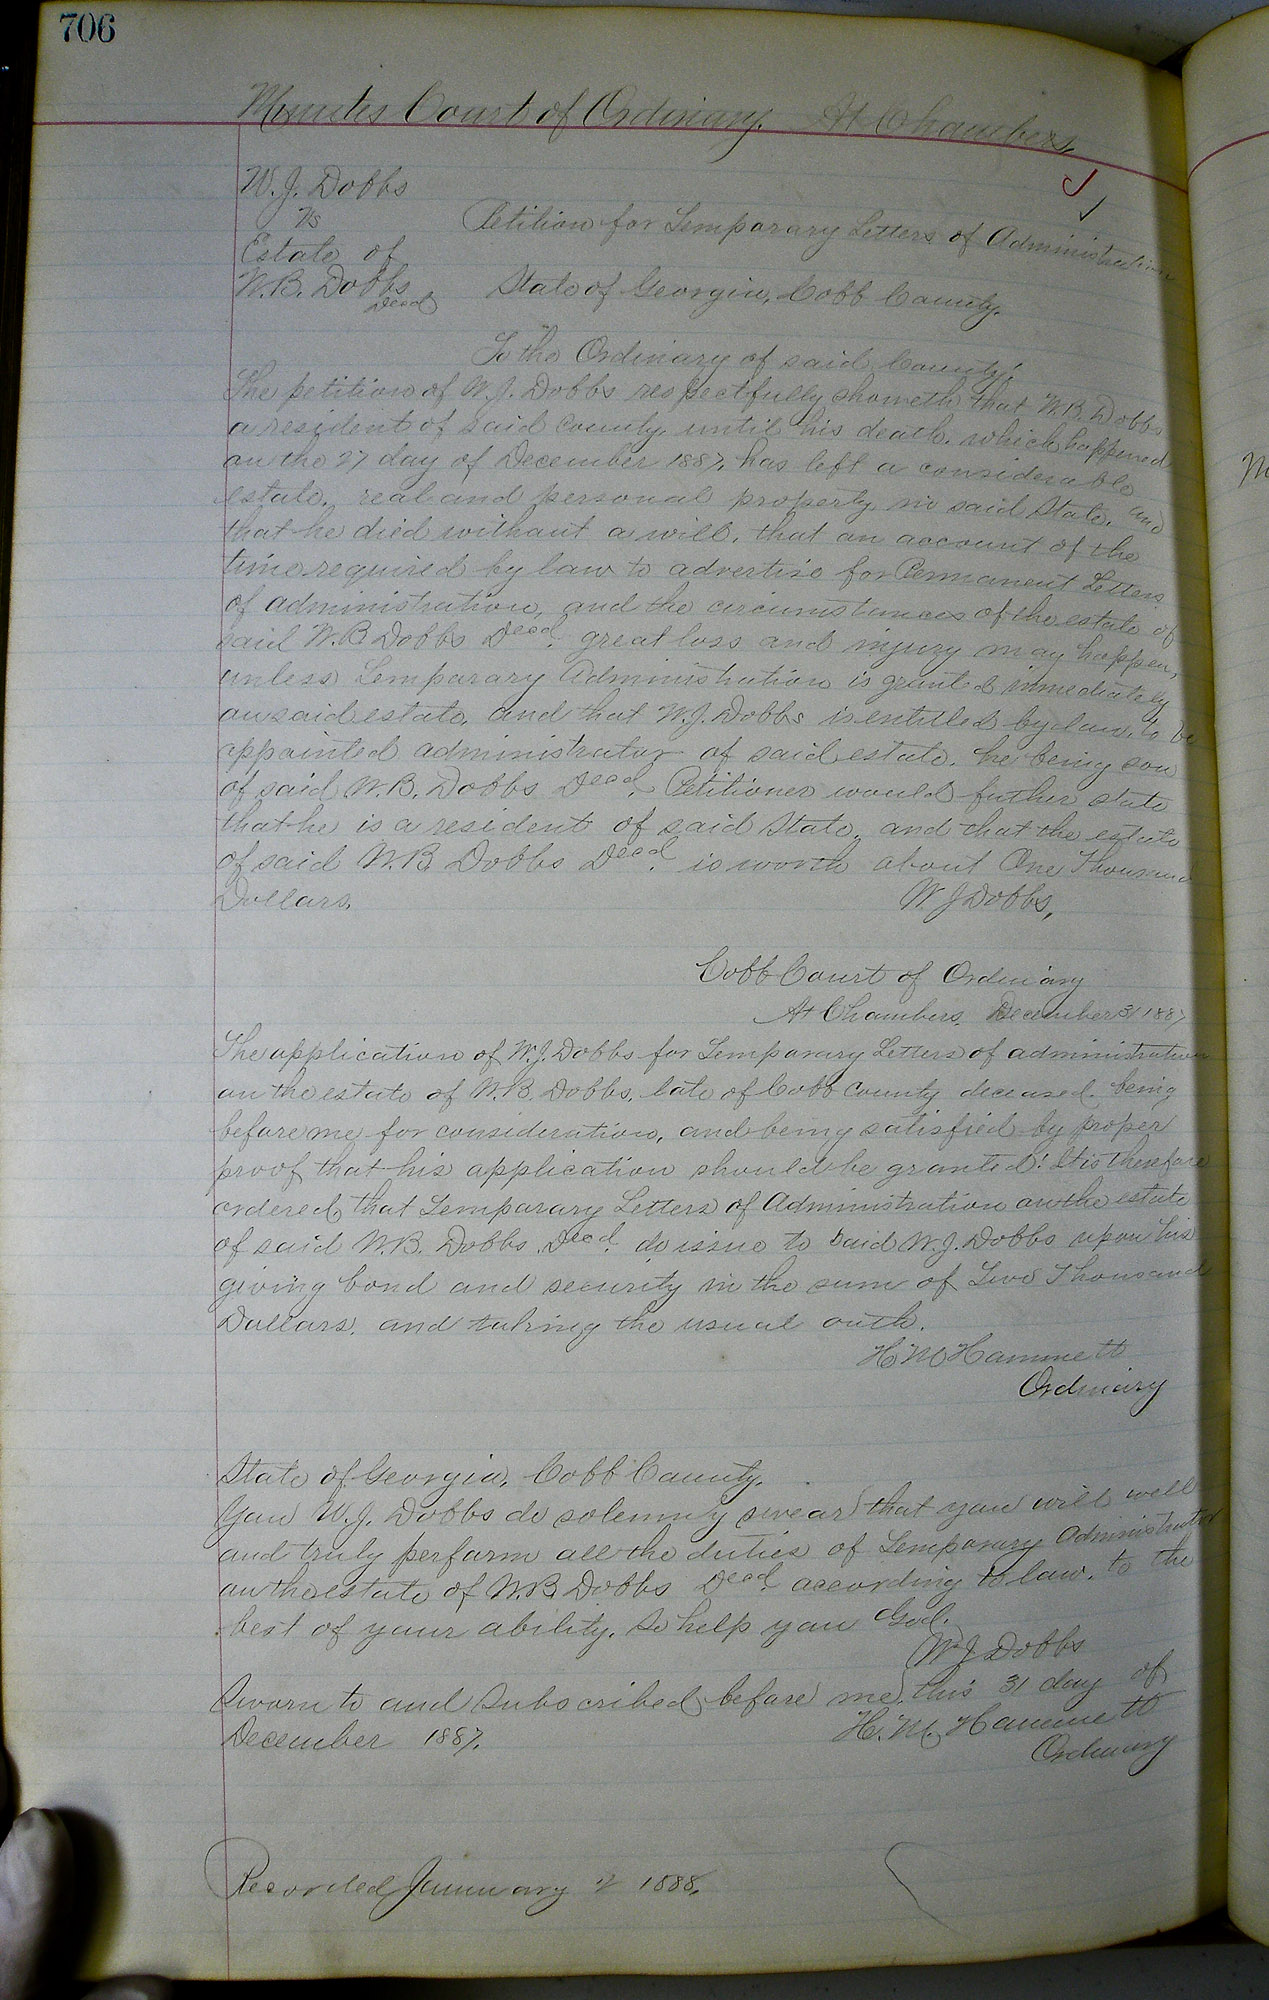 706
Minutes Court of Ordinary. At Chambers,
W. J. Dobbs
vs
Estate of
W. B. Dobbs
Decd
Petition for Temporary Letters of Administration
State of Georgia, Cobb County.
To the Ordinary of said County:
The petition of W. J. Dobbs respectfully showeth that W. B. Dobbs
a resident of said county, until his death, which happened
on the 27 day of December 1887, has left a considerable
estate, real and personal property, in said State, and
that he died without a will, that on account of the
time required by law to advertise for Permanent Letters
of administration, and the circumstances of the estate of
said W. B Dobbs Decd. great loss and injury may happen,
unless Temporary Administration is granted immediately
on said estate, and that W. J. Dobbs is entitled by law, to be
appointed administrator of said estate, he being son
of said W. B. Dobbs Decd. Petitioner would futher state
that he is a resident of said State, and that the estate
of said W. B. Dobbs Decd. is worth about One Thousand
Dollars.
W. J Dobbs,
Cobb Court of Ordinary
At Chambers, December 31 1887
The application of W. J. Dobbs for Temporary Letters of administration
on the estate of W. B. Dobbs, late of Cobb County deceased, being
before me for consideration, and being satisfied by proper
proof that his application should be granted: It is therefore
ordered that Temporary Letters of Administration on the estate
of said W. B. Dobbs Decd. do issue to said W. J. Dobbs upon his
giving bond and security in the sum of Two Thousand
Dollars, and taking the usual oath.
H M Hammett
Ordinary
State of Georgia, Cobb County.
You W. J. Dobbs do solemnly swear that you will well
and truly perform all the duties of Temporary Administrator
on the estate of W. B Dobbs Decd. according to law, to the
best of your ability. So help you God.
W. J Dobbs
Sworn to and Subscribed before me, this 31 day of
December 1887.
H. M. Hammett
Ordinary
Recorded January 1888.